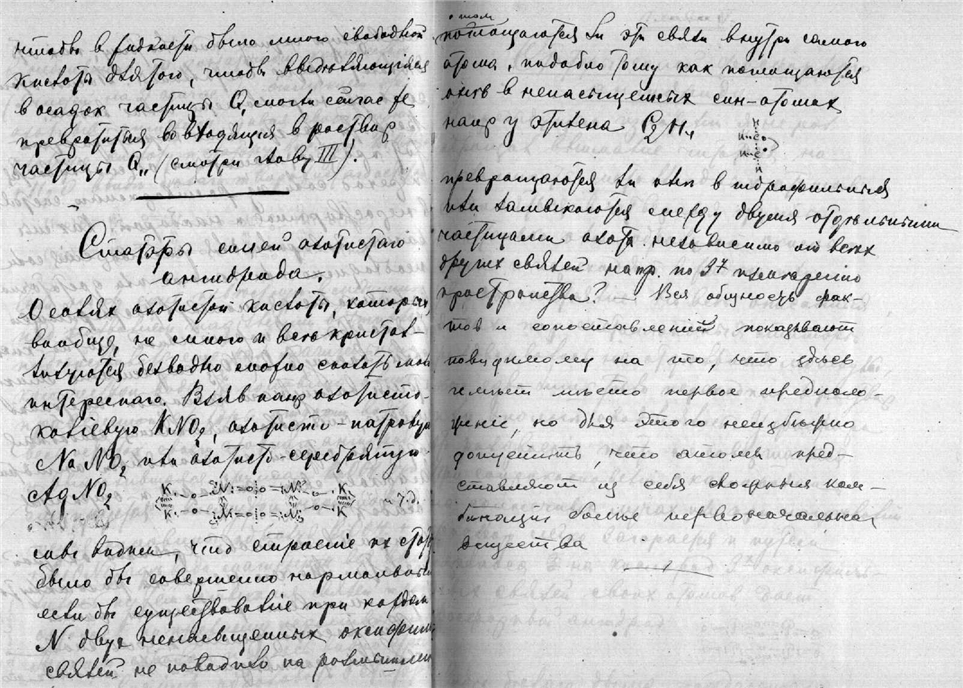 чтобы в жидкости было много свободной
кислоты для того, чтобы
в осадок частицы Q, могли сейчас же
превратиться во входящия в раствор
частицы Q,, (смотри главу III).
Структуры солей азотистаго
ангидрида.
О солях азотистой кислоты, которых
вообще, не много и всего кристал-
лизуются безводно можно сказать мало
интереснаго. Взяв напр азотисто-
калiевую KNO2, азотисто-натровую
NaNO2 или азотисто-серебряную
AgNO2
K O N O O N O K
K O N O O N O K и т.д.
видим, что строение их
было бы совершенно нормально
если бы существование при каждом
N двух ненасыщенных
связей не наводило на размышление
о том
поглощаются ли эти связи внутри самого
атома, подобно тому как поглощаются
оне в ненасыщенных
напр у этилена C2H4
превращаются ли оне в
или замыкаются между двумя отдельными
частицами азота независимо от всех
других связей напр. по 3му измерению
пространства? — Вся общность фак-
тов и сопоставлений показывают
повидимому на то, что здесь
имеет место первое предполо-
женiе, но для этого неизбежно
допустить, что атомы пред-
ставляют из себя сложныя ком-
бинации более первоначальнаго
вещества